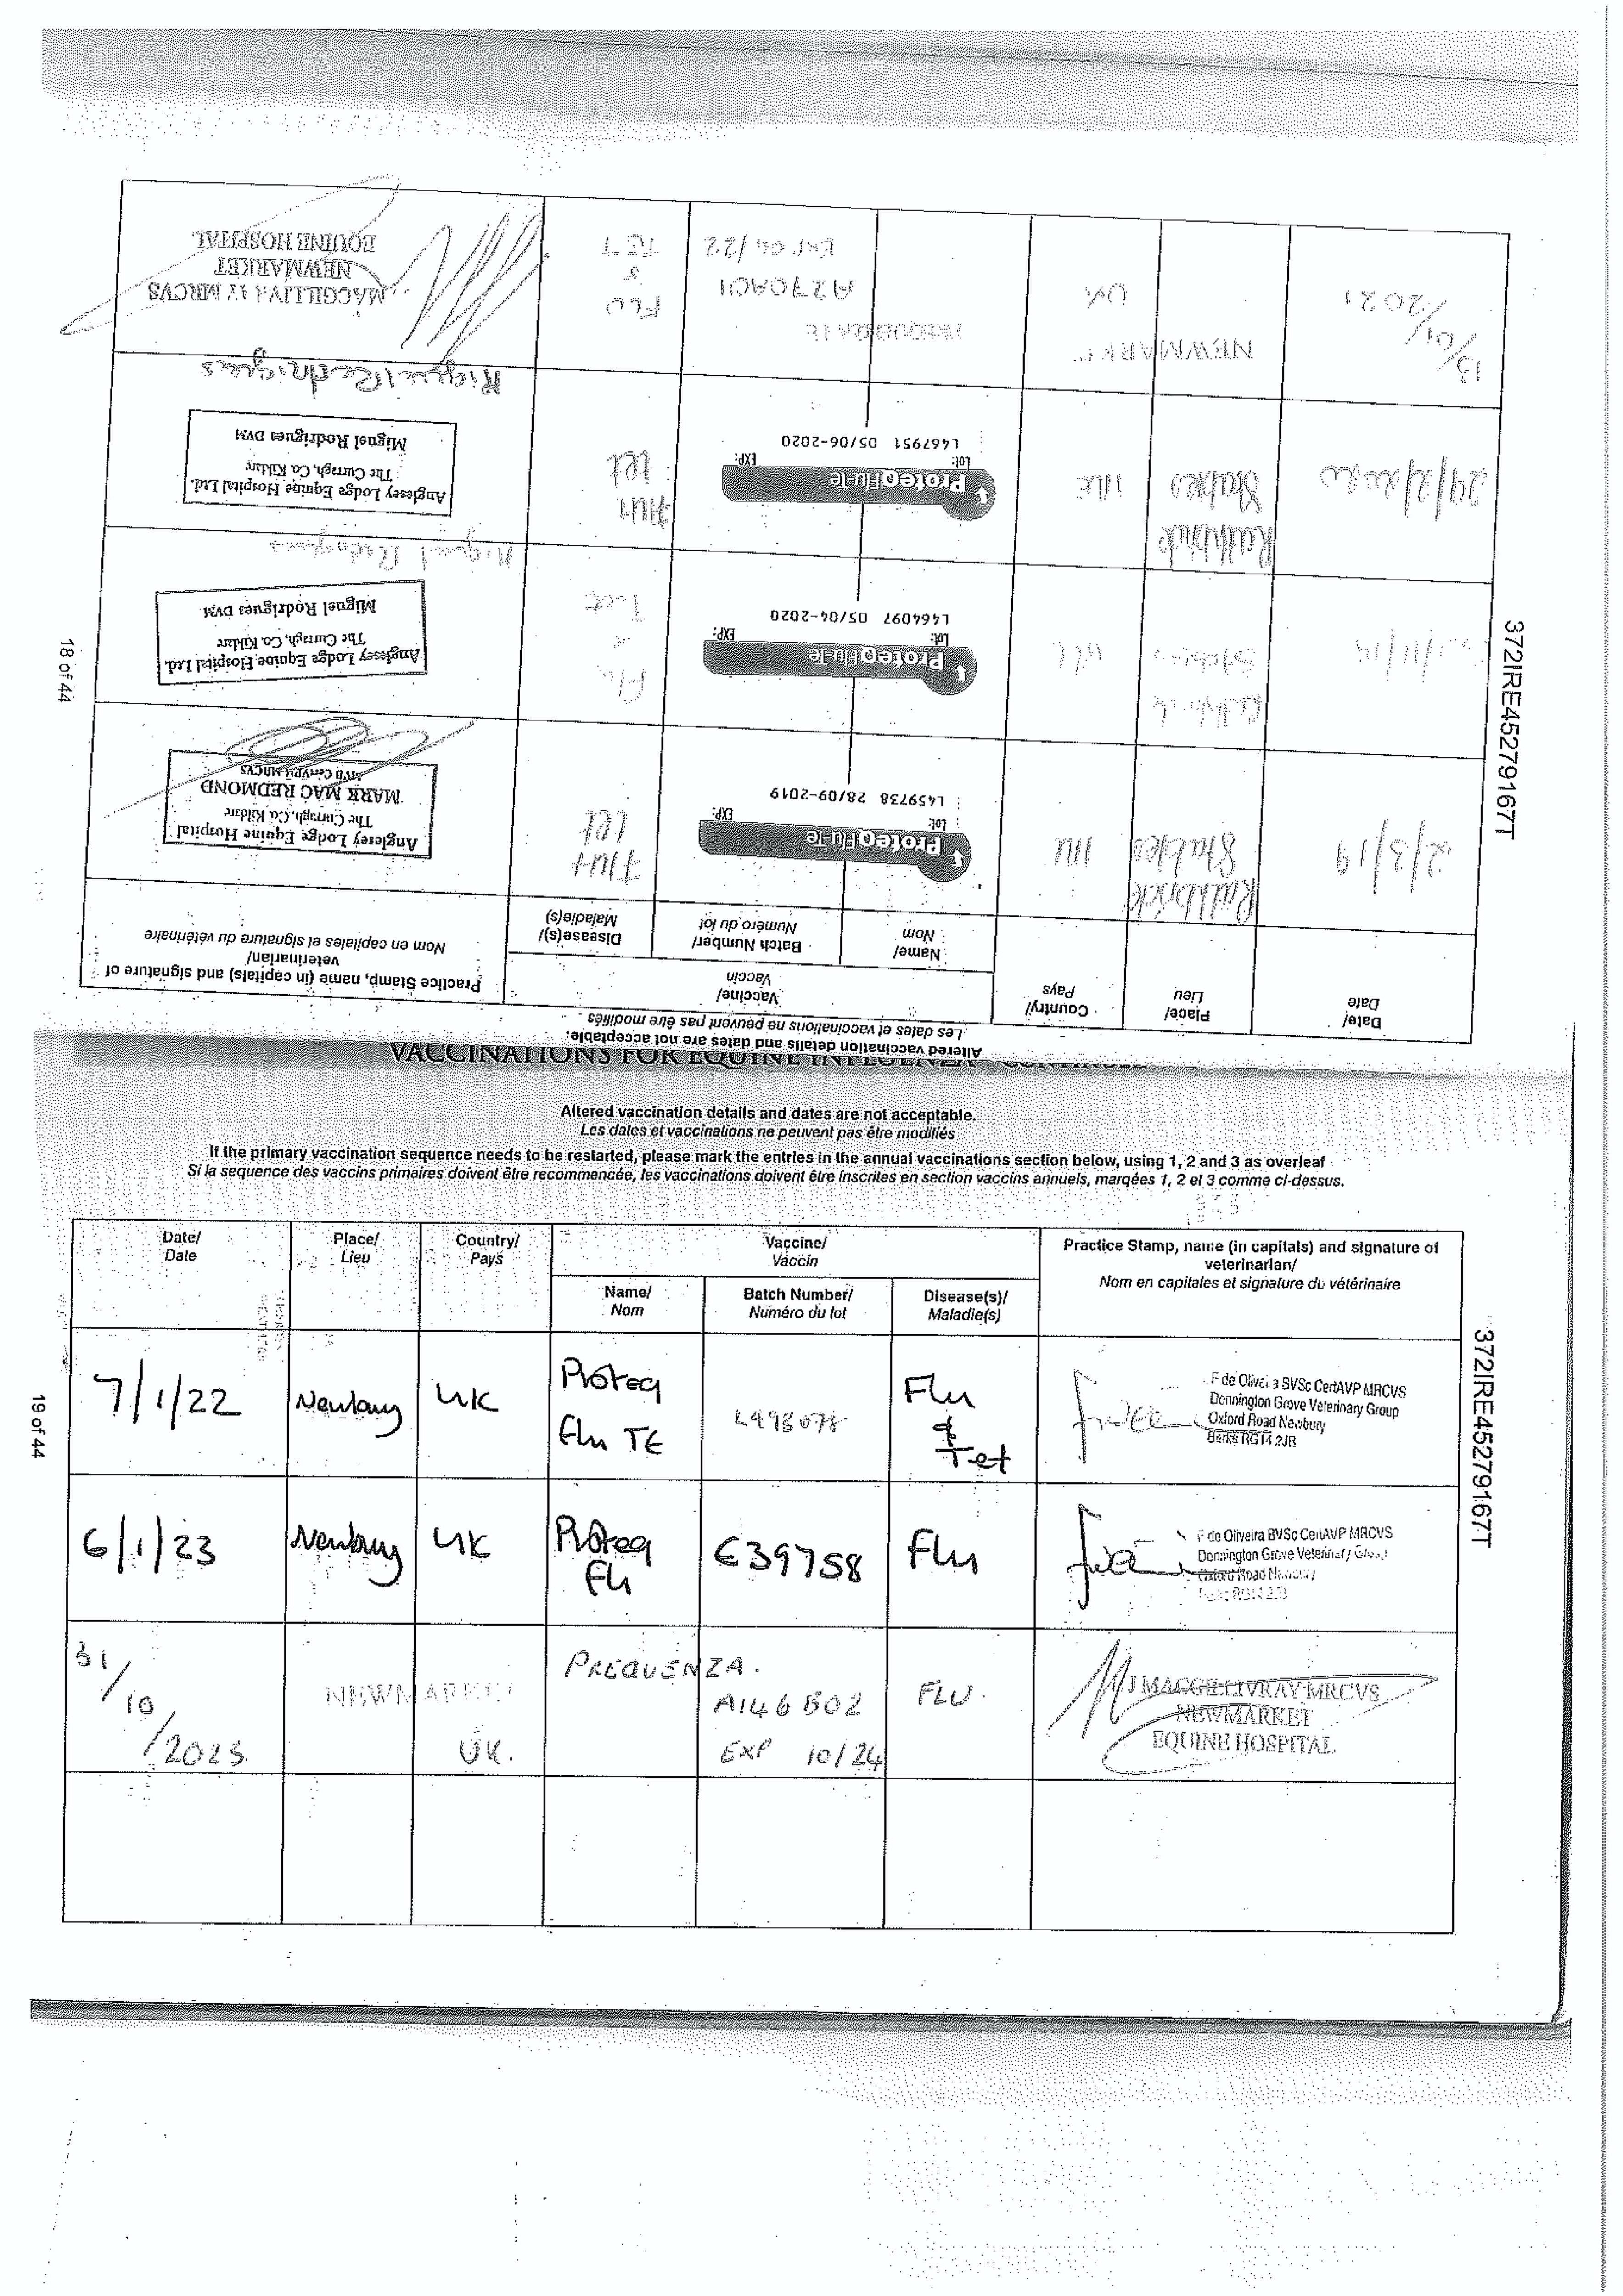 18 of 44
372IRE45279167T
Altered vaccination details and dates are not acceptable.
Les dates et vaccinations ne peuvent pas être modifiés
Date/
Date
Place/
Lieu
Country/
Pays
Vaccine/
Vaccin
Name/
Nom
Batch Number/
Numéro du lot
Disease(s)/
Maladie(s)
Practice Stamp, name (in capitals) and signature of
veterinarian/
Nom en capitales et signature du vétérinaire
2/3/19
Rathbride
Stables
ProteqFlu-Te
Lot: EXP:
L459738 28-09-2019
Flu +
tet
Anglesey Lodge Equine Hospital
The Curragh, Co. Kildare
MARK MAC REDMOND
MVB CertVPH MRCVS
Rathbride
Stables
ProteqFlu-Te
Lot: EXP:
L464097 05/04-2020
Flu
Tet
Anglesey Lodge Equine Hospital Ltd.
The Curragh, Co. Kildare
Miguel Rodrigues DVM
Miguel Rodrigues
24/2/2020
Rathbride
Stables
ProteqFlu-Te
Lot: EXP:
L467951 05/06-2020
Flu +
tet
Anglesey Lodge Equine Hospital Ltd.
The Curragh, Co. Kildare
Miguel Rodrigues DVM
Miguel Rodrigues
13/01/2021
NEWMARKET
UK
A270A01
FLU
&
TET
MRCVS
NEWMARKET
EQUINE HOSPITAL
VACCINATIONS FOR EQUINE
Altered vaccination details and dates are not acceptable.
Les dates et vaccinations ne peuvent pas être modifiés
If the primary vaccination sequence needs to be restarted, please mark the entries in the annual vaccinations section below, using 1, 2 and 3 as overleaf
Si la sequence des vaccins primaires doivent être recommencée, les vaccinations doivent être inscrites en section vaccins annuels, marqées 1, 2 et 3 comme ci-dessus.
19 of 44
372IRE45279167T
Date/
Date
Place/
Lieu
Country/
Pays
Vaccine/
Vaccin
Name/
Nom
Batch Number/
Numéro du lot
Disease(s)/
Maladie(s)
Practice Stamp, name (in capitals) and signature of
veterinarian/
Nom en capitales et signature du vétérinaire
7/1/22
Newbury
UK
Proteq
Flu TE
L493078
Flu
&
Tet
F de Oliveira BVSc CertAVP MRCVS
Donnington Grove Veterinary Group
Oxford Road Newbury
Berks RG14 2JB
6/1/23
Newbury
UK
Proteq
Flu
E39758
Flu
F de Oliveira BVSc CertAVP MRCVS
Donnington Grove Veterinary Group
Oxford Road Newbury
31/10/2023
NEWMARKET
UK.
PREQUENZA.
A146B02
EXP 10/24
FLU.
J MACGILLIVRAY MRCVS
NEWMARKET
EQUINE HOSPITAL